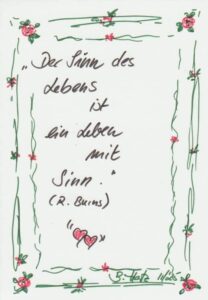 „Der Sinn des
Lebens
ist
ein Leben
mit
Sinn."
(R. Burns)